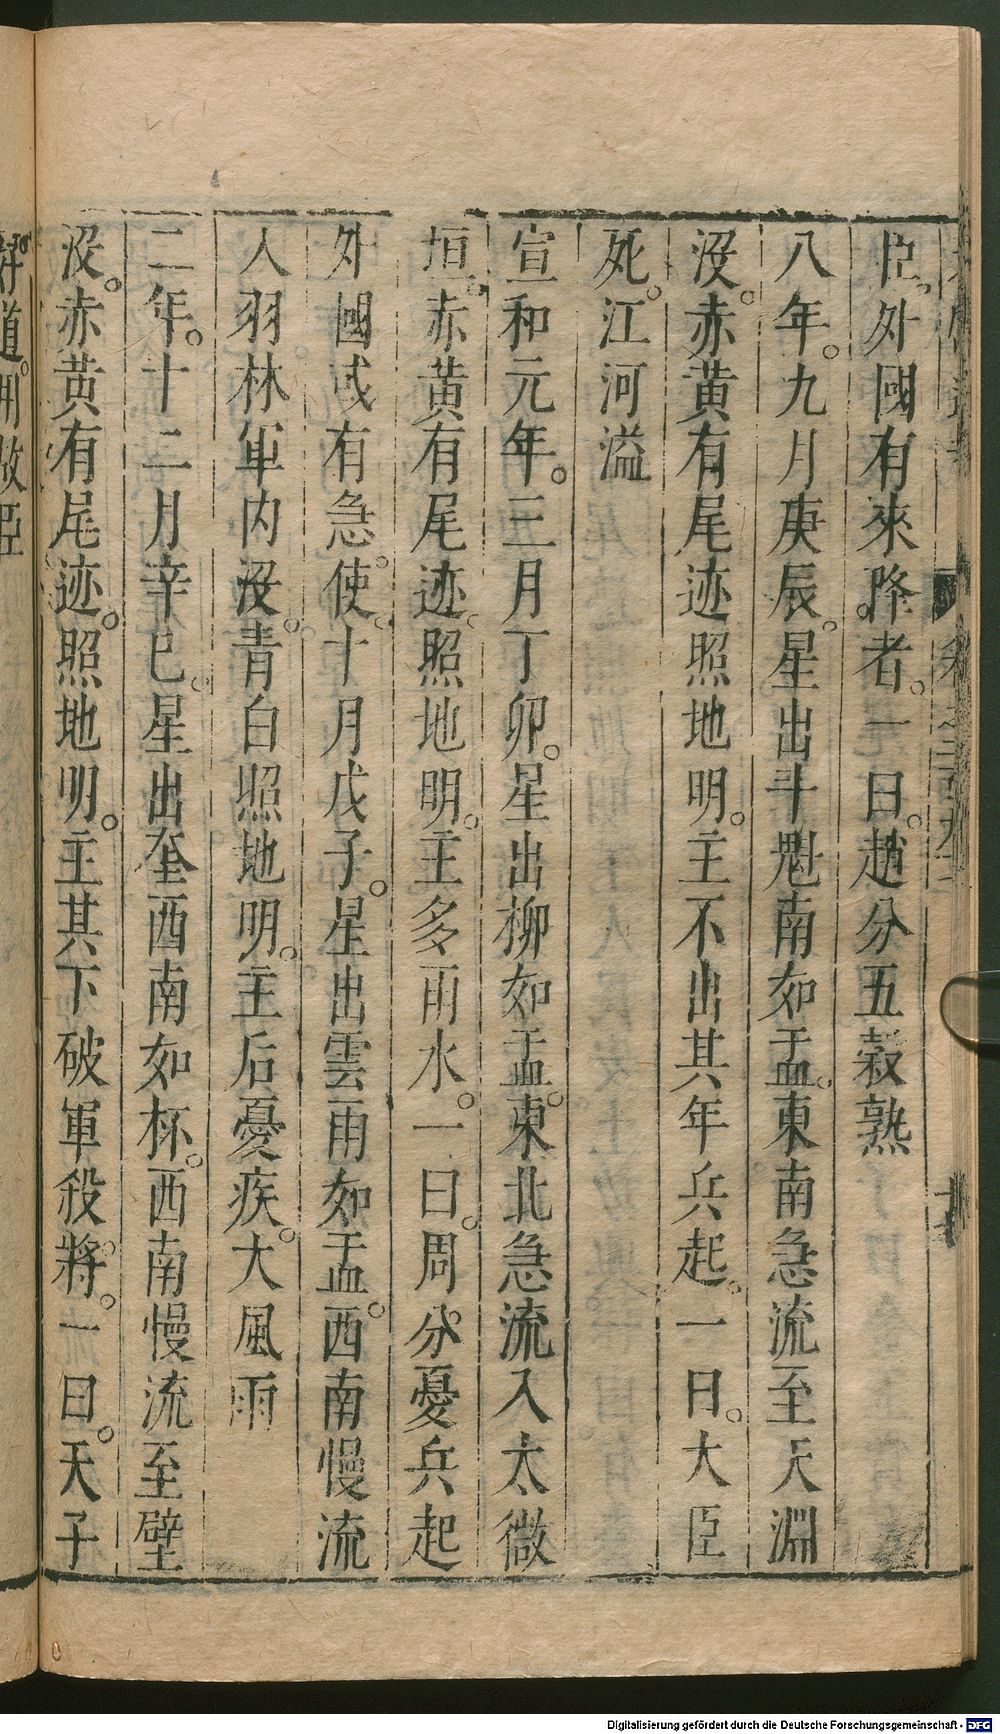 臣。外國有來降者。一曰。趙分五穀熟
八年。九月庚辰。星出斗魁南如盂。東南急流至天淵
沒。赤黃有尾迹照地明。主不出其年兵起。一曰。大臣
死。江河溢
宣和元年。三月丁卯。星出柳如盂。東北急流入太微
垣。赤黃有尾迹。照地明。主多雨水。一曰。周分。憂兵起
外國或有急。使。十月戊子。星出雲雨如盂。西南慢流
入羽林軍內沒。青白照地明。主后憂疾。大風雨
二年。十二月辛巳。星出奎西南如杯。西南慢流至壁
沒。赤黃有尾迹。照地明。主其下破軍殺將。一曰。天子
好道。用故臣
Digitalisierung gefördert durch die Deutsche Forschungsgemeinschaft - DFG